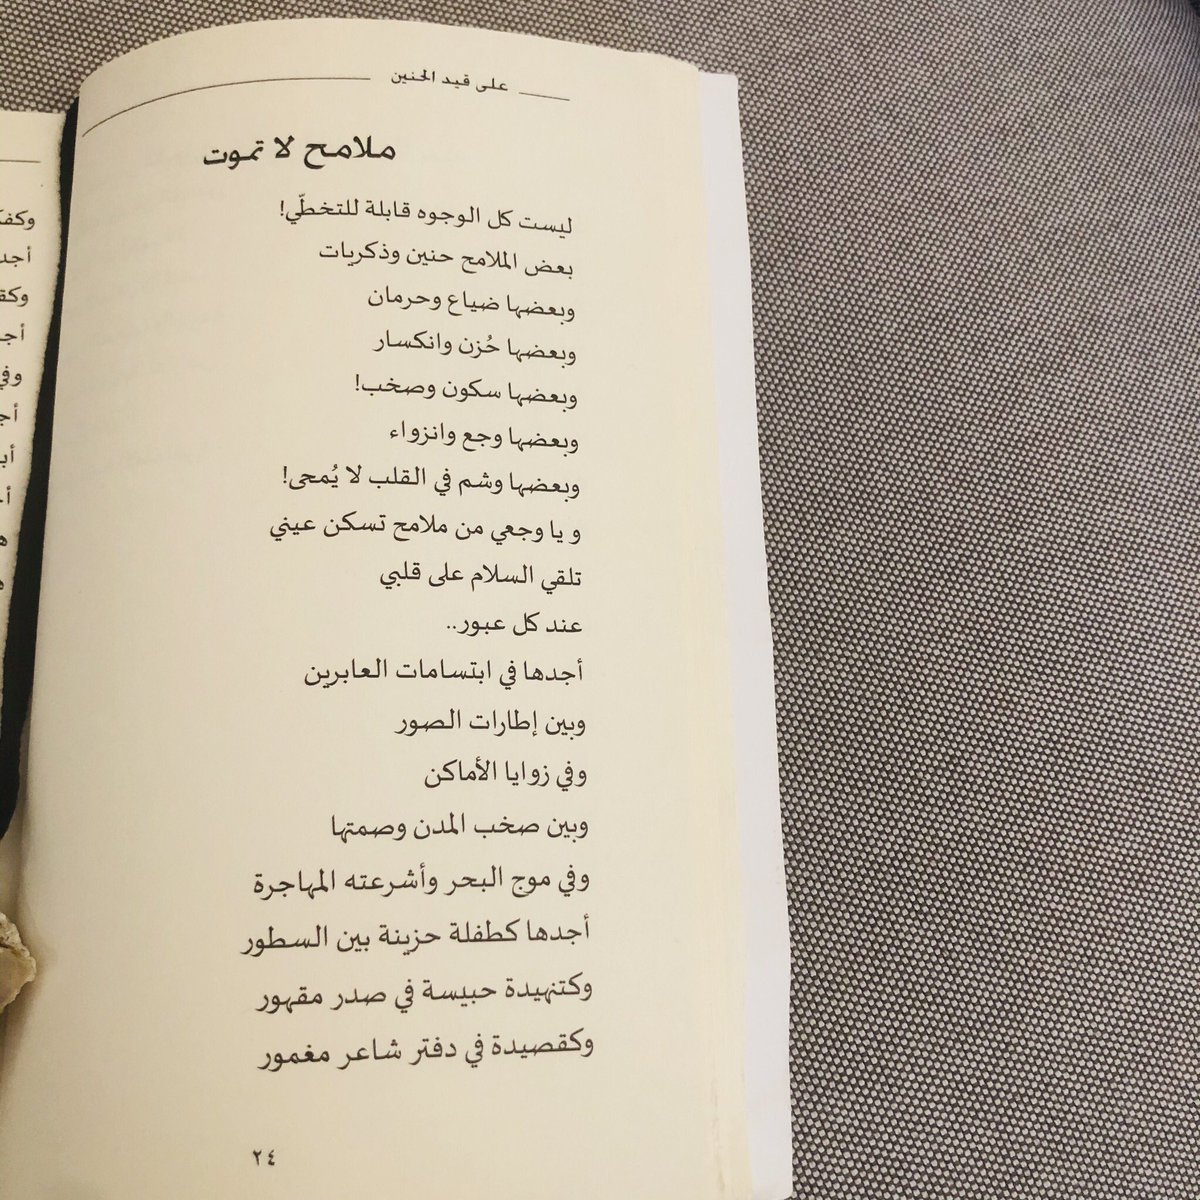 على قيد الحنين
ملامح لا تموت
ليست كل الوجوه قابلة للتخطّي!
بعض الملامح حنين وذكريات
وبعضها ضياع وحرمان
وبعضها حُزن وانكسار
وبعضها سكون وصخب!
وبعضها وجع وانزواء
وبعضها وشم في القلب لا يُمحى!
و يا وجعي من ملامح تسكن عيني
تلقي السلام على قلبي
عند كل عبور..
أجدها في ابتسامات العابرين
وبين إطارات الصور
وفي زوايا الأماكن
وبين صخب المدن وصمتها
وفي موج البحر وأشرعته المهاجرة
أجدها كطفلة حزينة بين السطور
وكتنهيدة حبيسة في صدر مقهور
وكقصيدة في دفتر شاعر مغمور
٢٤